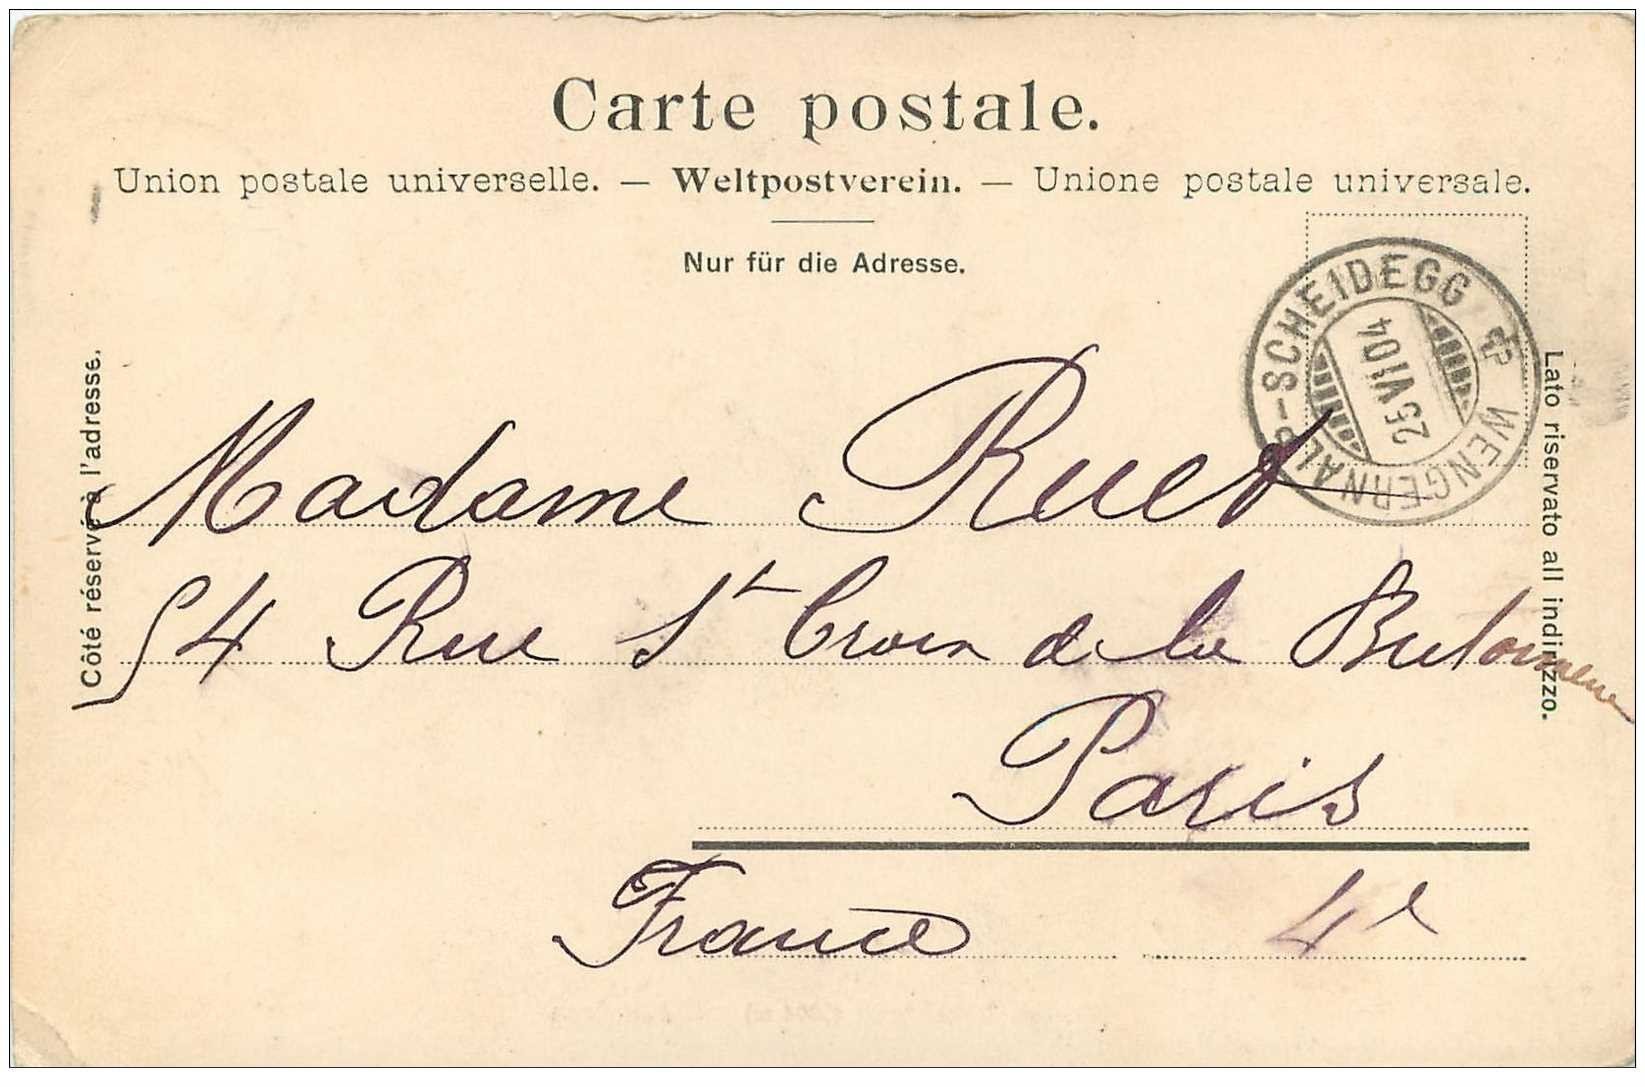 Carte postale.
Union postale universelle. — Weltpostverein. — Unione postale universale.
Nur für die Adresse.
WENGERNALP-SCHEIDEGG
25 VI 04
Côté réservé à l'adresse.
Lato riservato all indirizzo.
Madame Ruet
54 Rue St Croix de la
Paris
France 4e